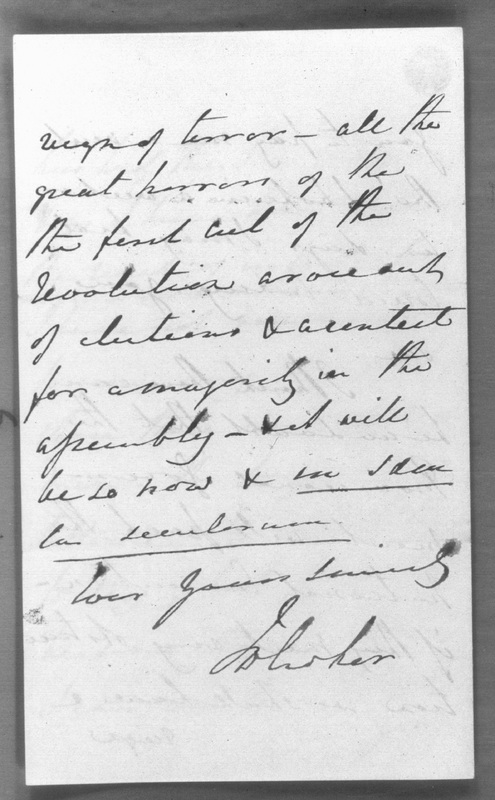 reign of terror – all the
great horrors of the
the first act of the
Revolution arose out
of elections & a contest
for a majority in the
assembly – & it will
be so now & in
la seculorum
Ever Yours sincerely
JW Croker